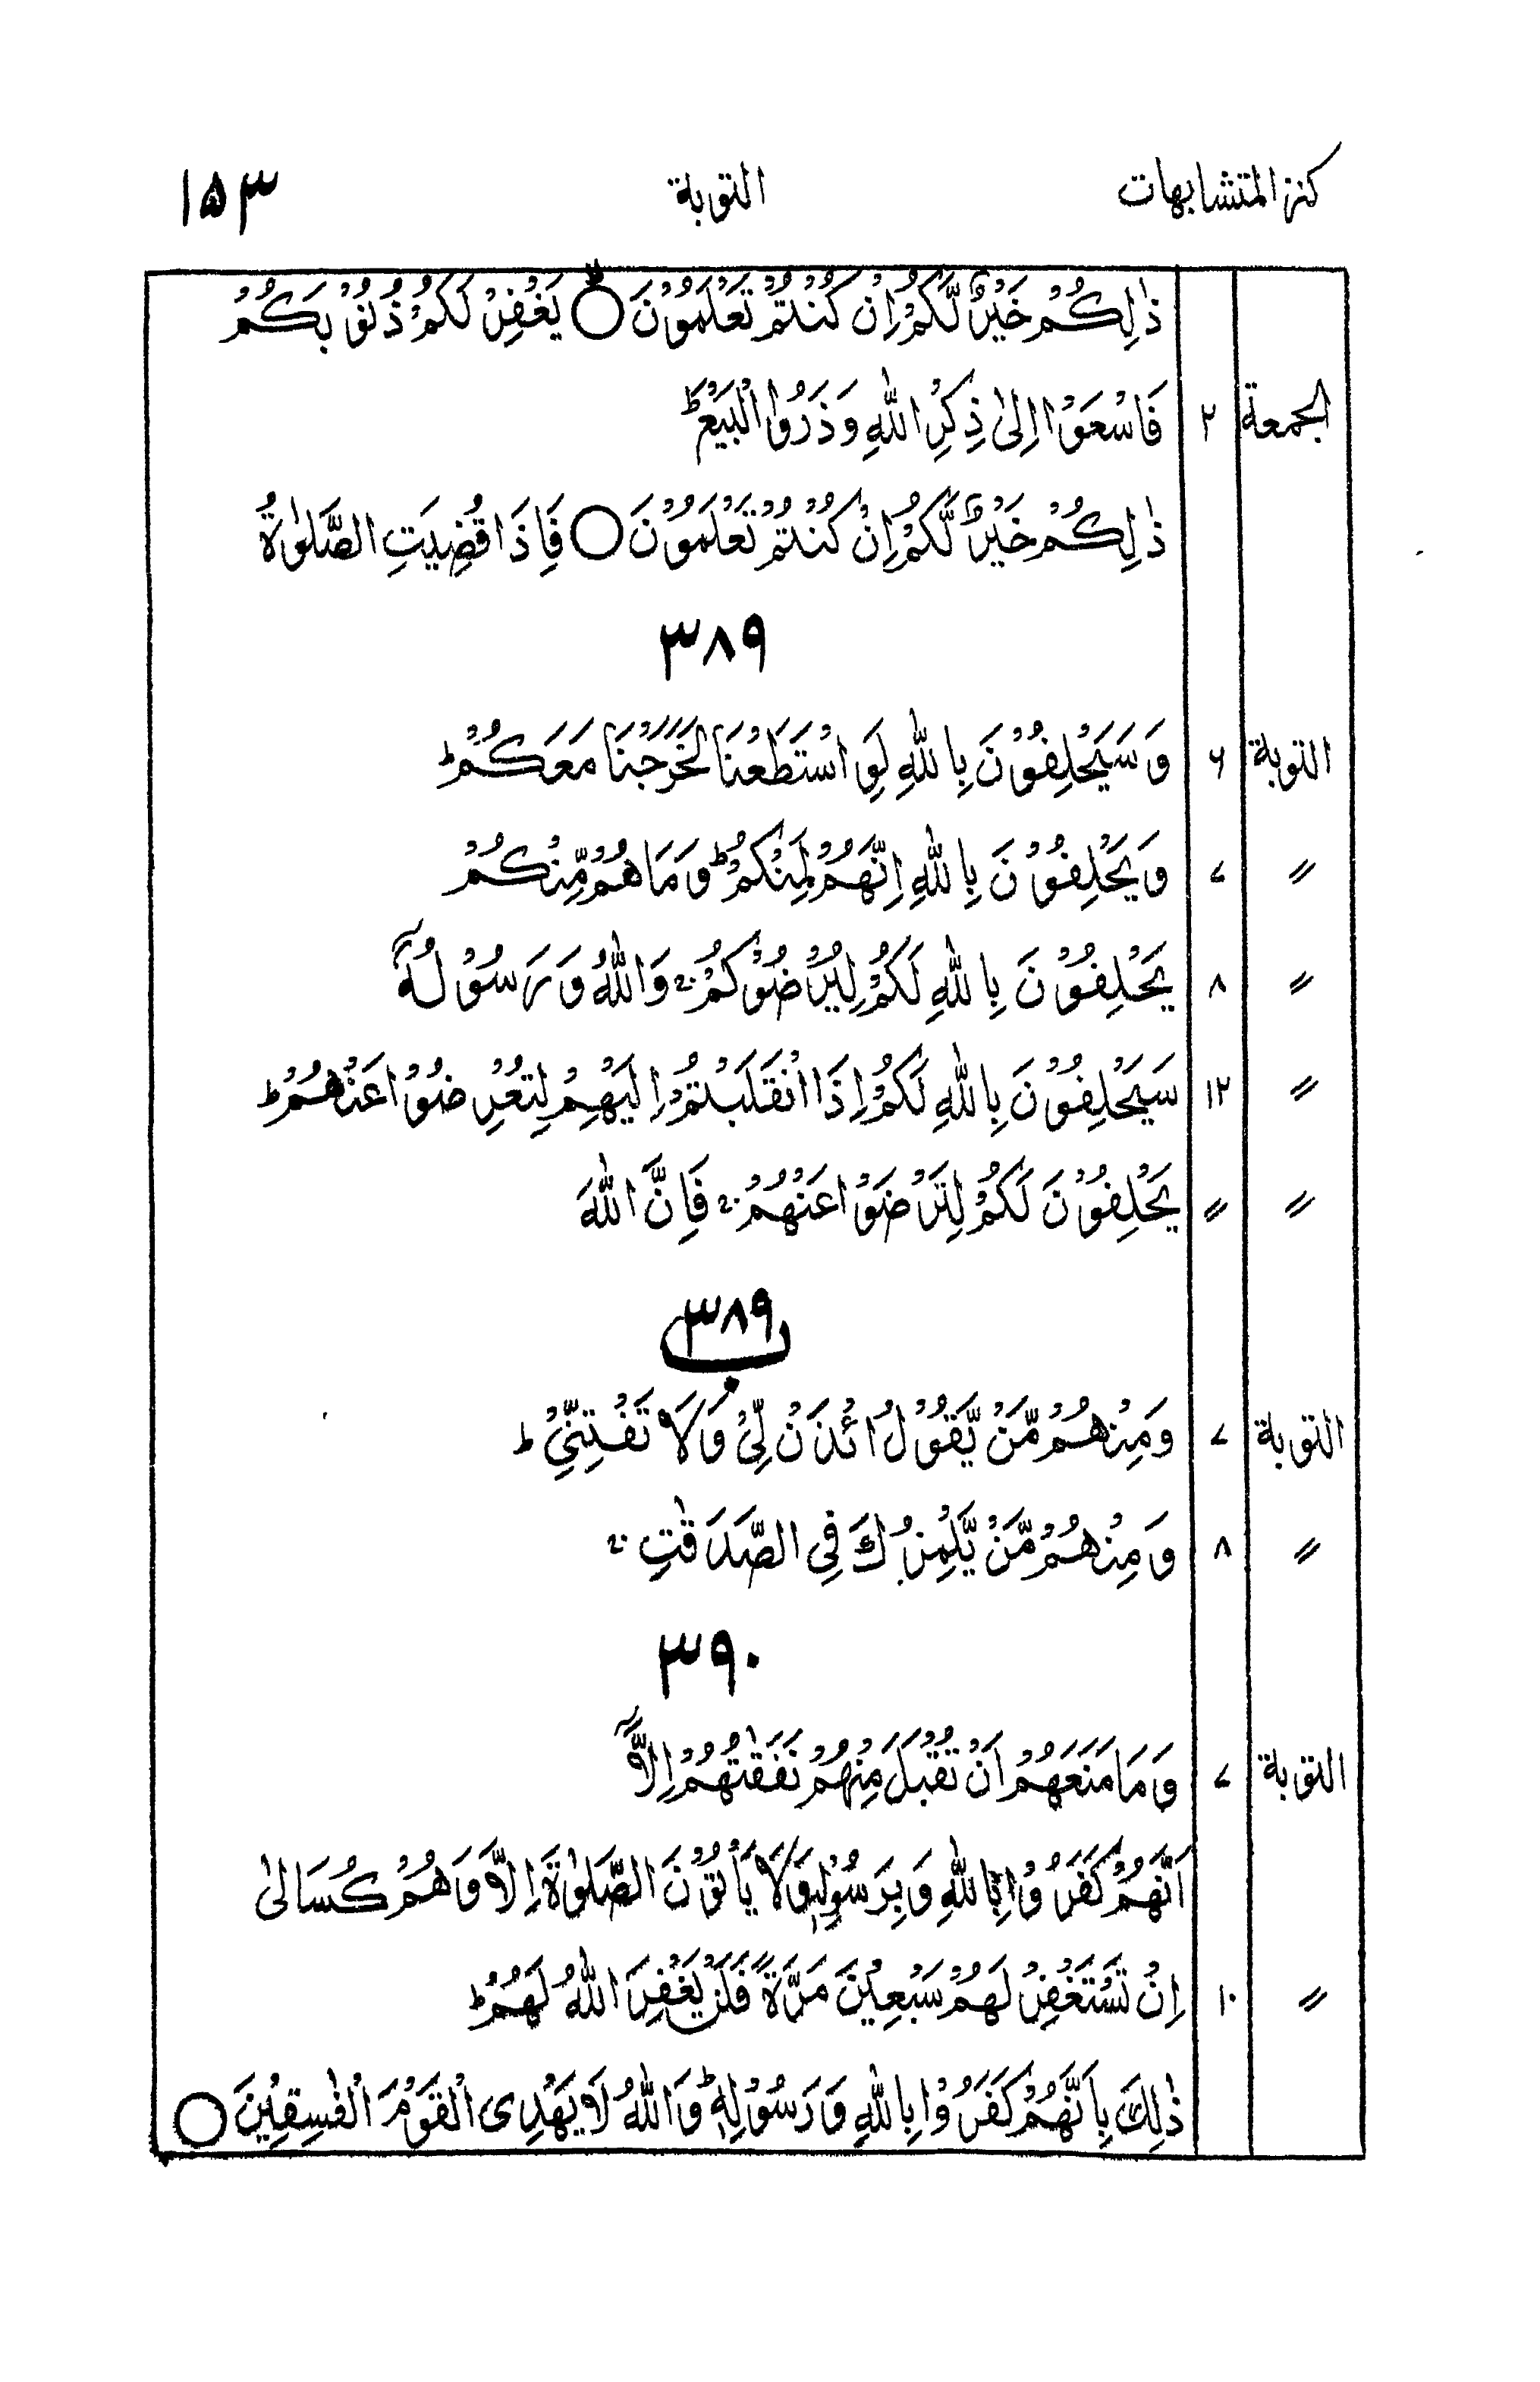 كنز المتشابهات التوبة ۱۵۳
ذٰلِكُمْ خَيْرٌ لَّكُمْ اِنْ كُنْتُمْ تَعْلَمُوْنَ ۝ يَغْفِرْ لَكُمْ ذُنُوْبَكُمْ
الجمعة ۲ فَاسْعَوْا اِلىٰ ذِكْرِ اللّٰهِ وَذَرُوا الْبَيْعَ ؕ
ذٰلِكُمْ خَيْرٌ لَّكُمْ اِنْ كُنْتُمْ تَعْلَمُوْنَ ۝ فَاِذَا قُضِيَتِ الصَّلٰوةُ
۳۸۹
التوبة ۶ وَسَيَحْلِفُوْنَ بِاللّٰهِ لَوِ اسْتَطَعْنَا لَخَرَجْنَا مَعَكُمْ ؕ
〃 ۷ وَيَحْلِفُوْنَ بِاللّٰهِ اِنَّهُمْ لَمِنْكُمْ ؕ وَمَا هُمْ مِّنْكُمْ
〃 ۸ يَحْلِفُوْنَ بِاللّٰهِ لَكُمْ لِيُرْضُوْكُمْ ۚ وَاللّٰهُ وَرَسُوْلُهٗٓ
〃 ۱۲ سَيَحْلِفُوْنَ بِاللّٰهِ لَكُمْ اِذَا انْقَلَبْتُمْ اِلَيْهِمْ لِتُعْرِضُوْا عَنْهُمْ ؕ
〃 〃 يَحْلِفُوْنَ لَكُمْ لِتَرْضَوْا عَنْهُمْ ۚ فَاِنَّ اللّٰهَ
۳۸۹ ب
التوبة ۷ وَمِنْهُمْ مَّنْ يَّقُوْلُ ائْذَنْ لِّيْ وَلَا تَفْتِنِّيْ ؕ
〃 ۸ وَمِنْهُمْ مَّنْ يَّلْمِزُكَ فِى الصَّدَقٰتِ ۚ
۳۹۰
التوبة ۷ وَمَا مَنَعَهُمْ اَنْ تُقْبَلَ مِنْهُمْ نَفَقٰتُهُمْ اِلَّآ
اَنَّهُمْ كَفَرُوْا بِاللّٰهِ وَبِرَسُوْلِهٖ وَلَا يَأْتُوْنَ الصَّلٰوةَ اِلَّا وَهُمْ كُسَالىٰ
〃 ۱۰ اِنْ تَسْتَغْفِرْ لَهُمْ سَبْعِيْنَ مَرَّةً فَلَنْ يَّغْفِرَ اللّٰهُ لَهُمْ ؕ
ذٰلِكَ بِاَنَّهُمْ كَفَرُوْا بِاللّٰهِ وَرَسُوْلِهٖ ؕ وَاللّٰهُ لَا يَهْدِى الْقَوْمَ الْفٰسِقِيْنَ ۝